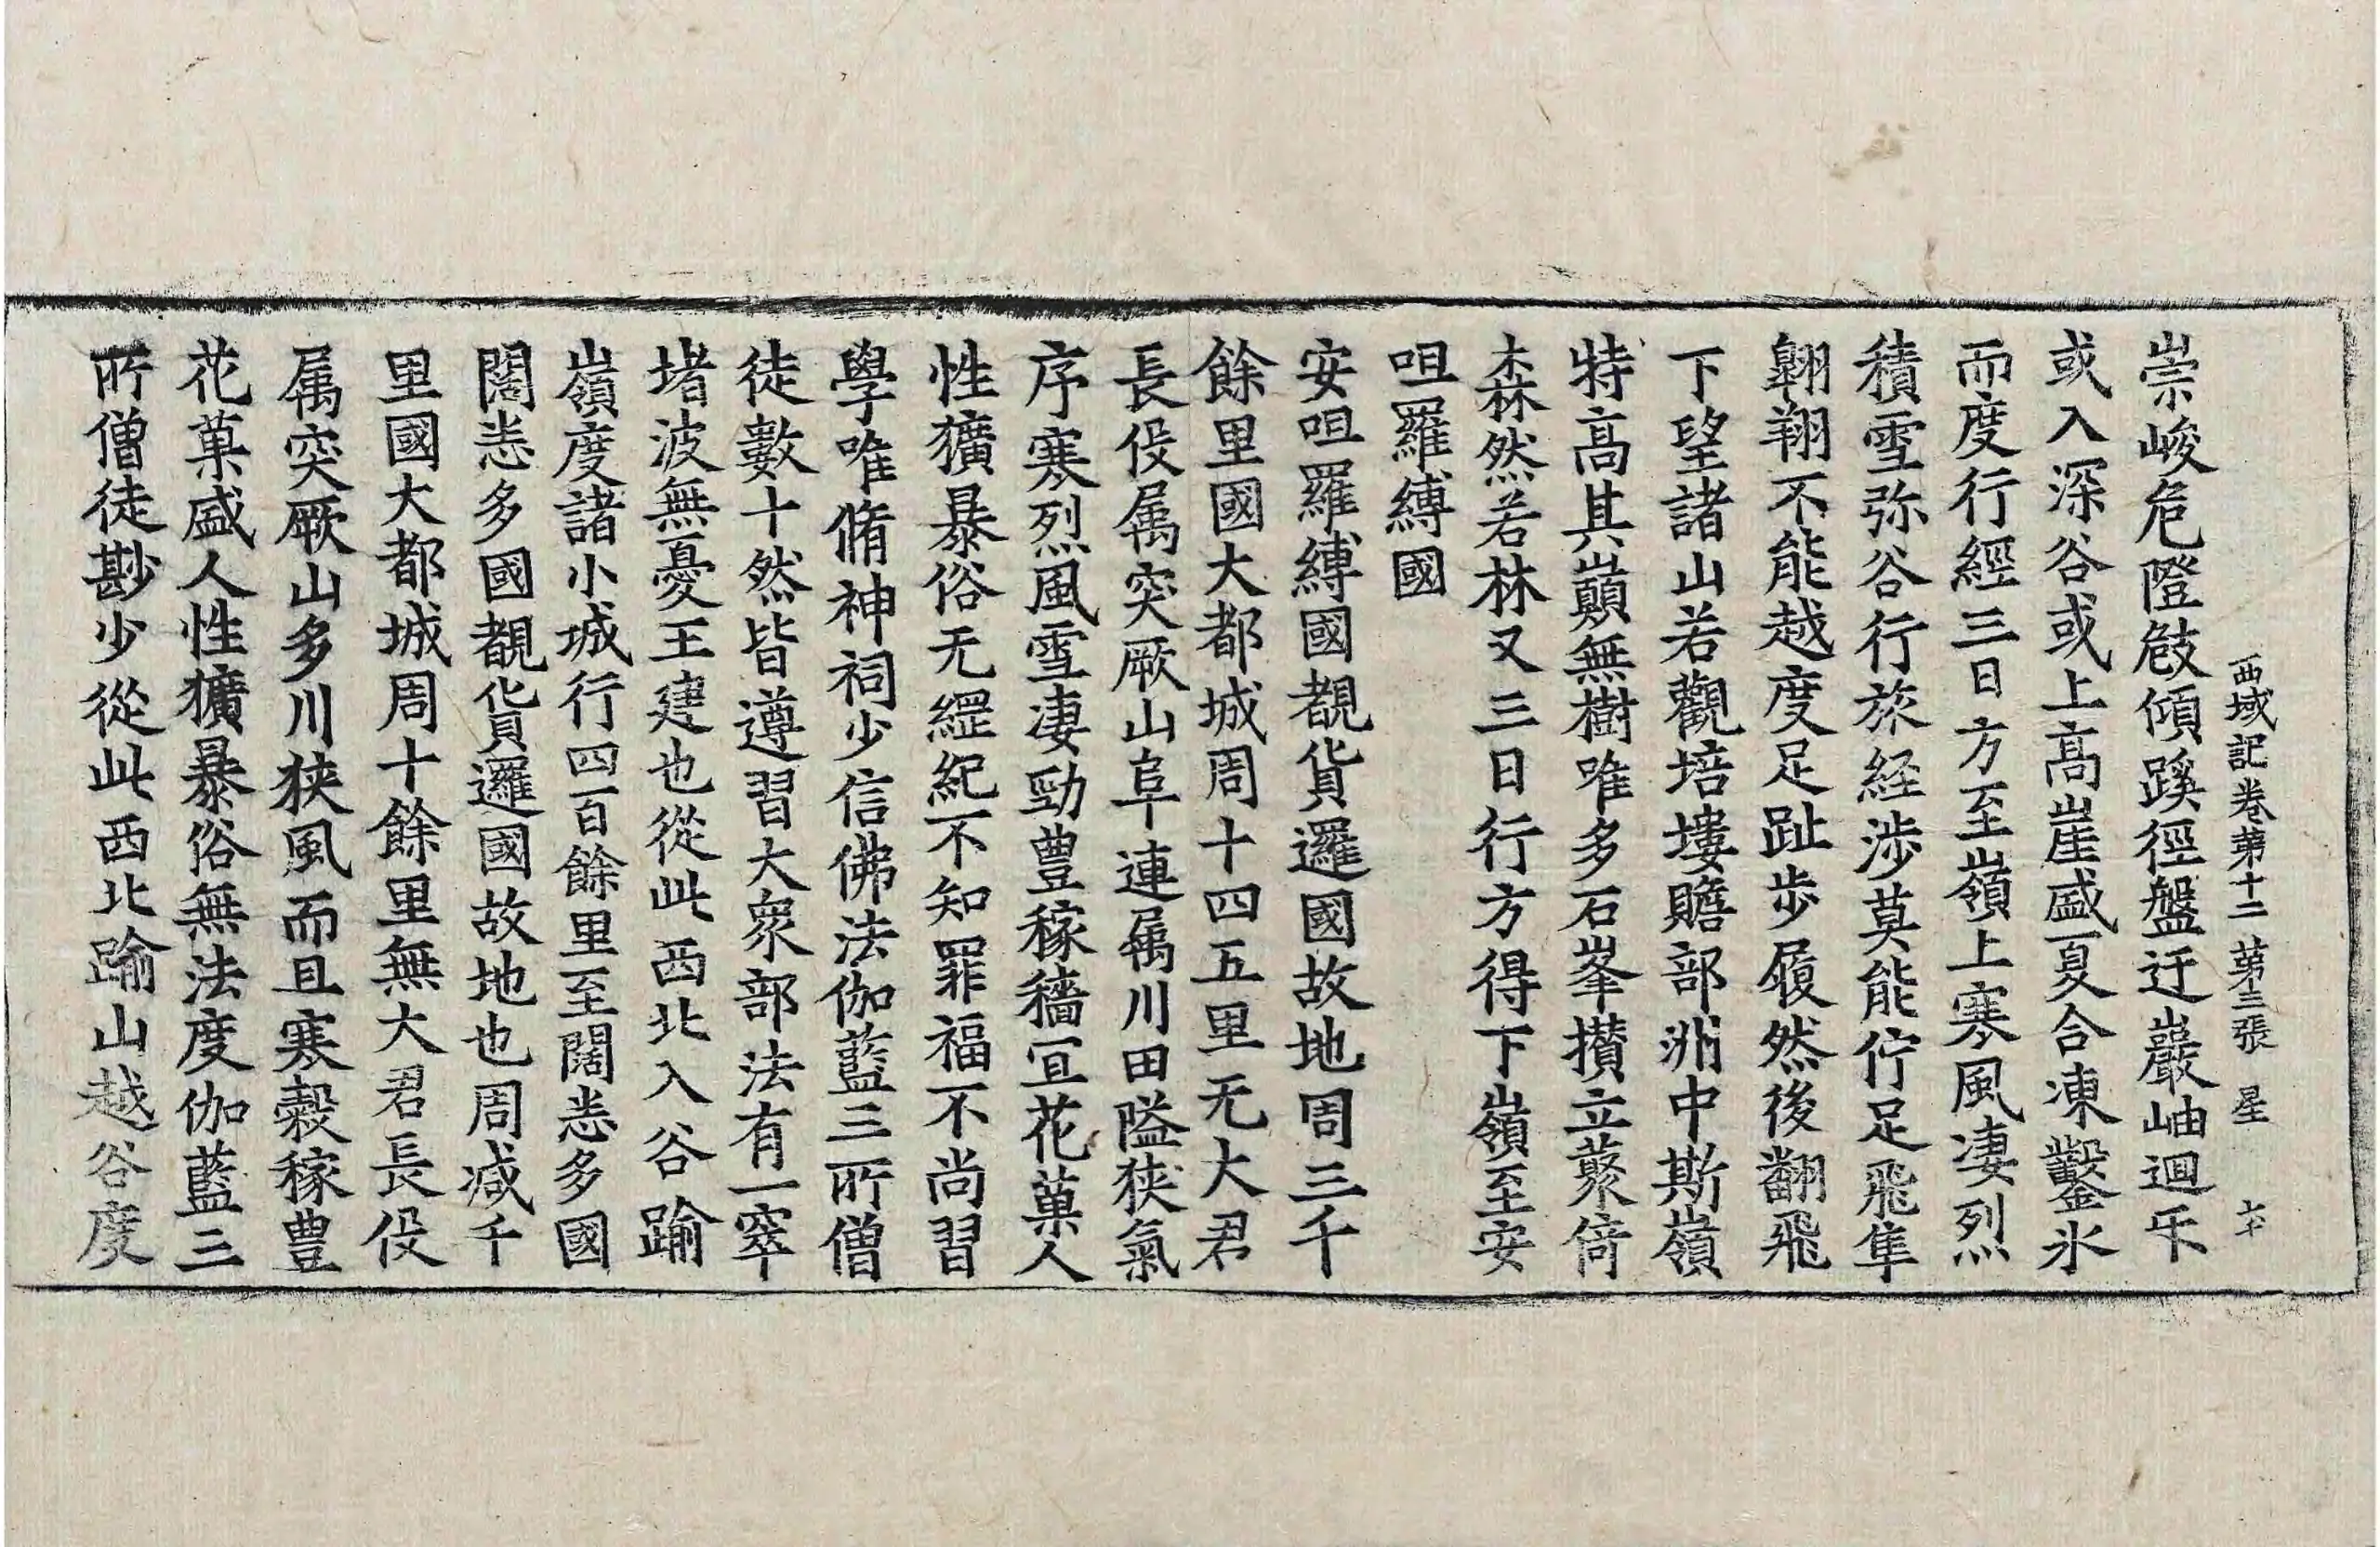 西域記卷第十二 第三張 星
崇峻危隥攲傾蹊徑盤迂巖岫迴互
或入深谷或上高崖盛夏合凍鑿氷
而度行經三日方至嶺上寒風凄烈
積雪弥谷行旅経渉莫能佇足飛隼
翱翔不能越度足趾歩履然後翻飛
下望諸山若觀培塿贍部洲中斯嶺
特高其巔無樹唯多石峯攢立藂倚
森然若林又三日行方得下嶺至安
呾羅縛國
安呾羅縛國覩貨邏國故地周三千
餘里國大都城周十四五里无大君
長役属突厥山阜連属川田隘狹氣
序寒烈風雪凄勁豊稼穡冝花菓人
性獷暴俗无綱紀不知罪福不尚習
學唯脩神祠少信佛法伽藍三所僧
徒數十然皆遵習大衆部法有一窣
堵波無憂王建也從此西北入谷踰
嶺度諸小城行四百餘里至闊悉多國
闊悉多國覩貨邏國故地也周减千
里國大都城周十餘里無大君長役
属突厥山多川狭風而且寒穀稼豊
花菓盛人性獷暴俗無法度伽藍三
所僧徒尠少從此西北踰山越谷度